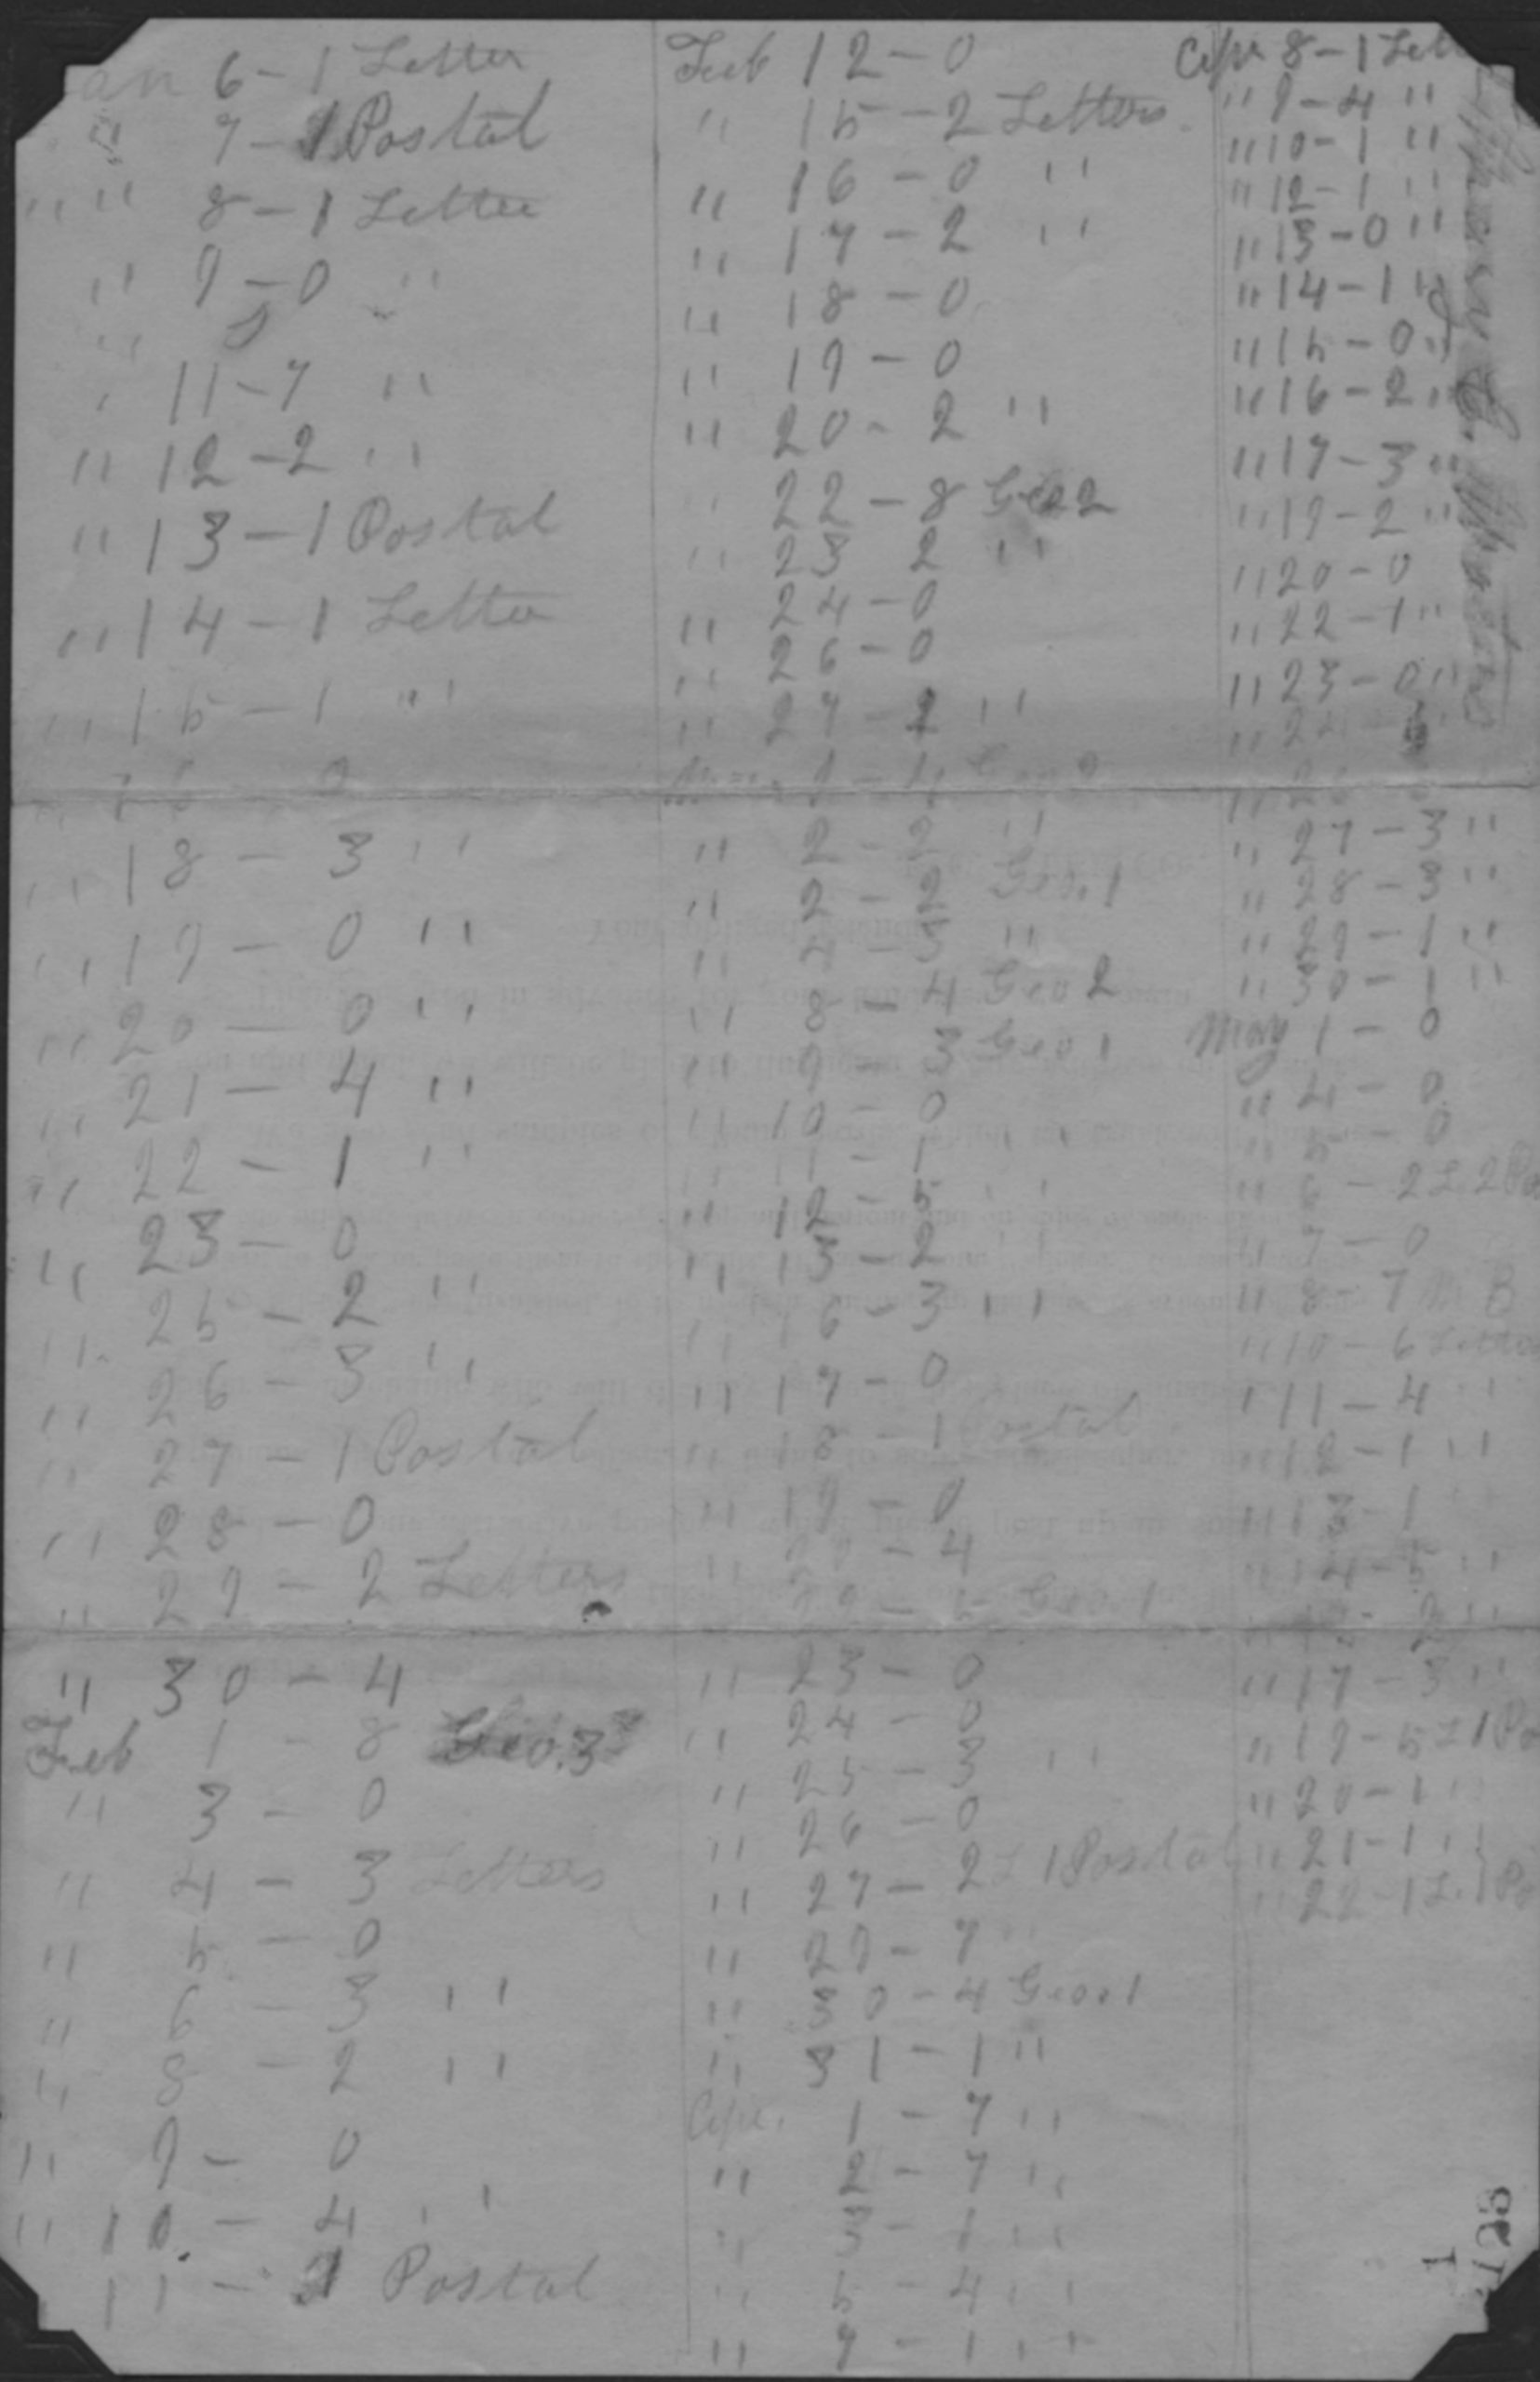 an 6 - 1 Letter
" 7 - 1 Postal
" " 8 - 1 Letter
" 9 - 0 "
" 11 - 7 "
" 12 - 2 "
" 13 - 1 Postal
" 14 - 1 Letter
" 15 - 1 "
" 18 - 3 "
" 19 - 0 "
" 20 - 0 "
" 21 - 4 "
" 22 - 1 "
" 23 - 0
" 25 - 2 "
" 26 - 3 "
" 27 - 1 Postal
" 28 - 0
" 29 - 2 Letters
" 30 - 4
Feb 1 - 8 Geo. 3
" 3 - 0
" 4 - 3 Letters
" 5 - 0
" 6 - 3 "
" 8 - 2 "
" 9 - 0
" 10 - 4 "
11 - 1 Postal
Feb 12 - 0
" 15 - 2 Letters
" 16 - 0 "
" 17 - 2 "
" 18 - 0
" 19 - 0
" 20 - 2 "
" 22 - 8 Geo 2
" 23 2 "
" 24 - 0
" 26 - 0
" 27 - 2 "
" 2 - 2 "
" 2 - 2 Geo. 1
" 4 - 3 "
" 8 - 4 Geo 2
" 9 - 3 Geo 1
" 10 - 0
" 11 - 1 "
" 12 - 5 "
" 13 - 2 "
" 16 - 3 "
" 17 - 0
" 18 - 1 Postal
" 19 - 0
" - 4
Geo 1
" 23 - 0
" 24 - 0
" 25 - 3 "
" 26 - 0
" 27 - 2 L 1 Postal
" 29 - 7
" 30 - 4 Geo. 1
" 31 - 1 "
Apr. 1 - 7 "
" 2 - 7 "
" 3 - 1 "
" 5 - 4 "
" 7 - 1 "
Apr 8 - 1 Lett
" 9 - 4 "
" 10 - 1 "
" 12 - 1 "
" 13 - 0 "
" 14 - 1 "
" 15 - 0 "
" 16 - 2 "
" 17 - 3 "
" 19 - 2 "
" 20 - 0
" 22 - 1 "
" 23 - 0 "
" 27 - 3 "
" 28 - 3 "
" 29 - 1 "
" 30 - 1 "
May 1 - 0
" 4 - 0
" 5 - 0
" 6 - 2 L 2 Po
" 7 - 0
" 8 - 7
" 10 - 6 Letter
" 11 - 4 "
" 12 - 1 "
" 13 - 1
" 14 - 5 "
" 17 - 3 "
" 19 - 5 L 1 Po
" 20 - 1 "
" 21 - 1 "
" 22 - 1 L. 1 Po